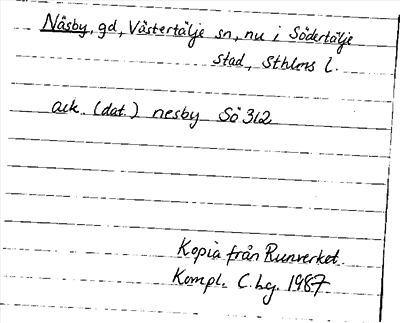 Näsby, gd, Västertälje sn, nu i Södertälje
stad, Sthlms l.
ack. (dat.) nesby Sö 312
Kopia från Runverket.
Kompl. C.bg. 1987